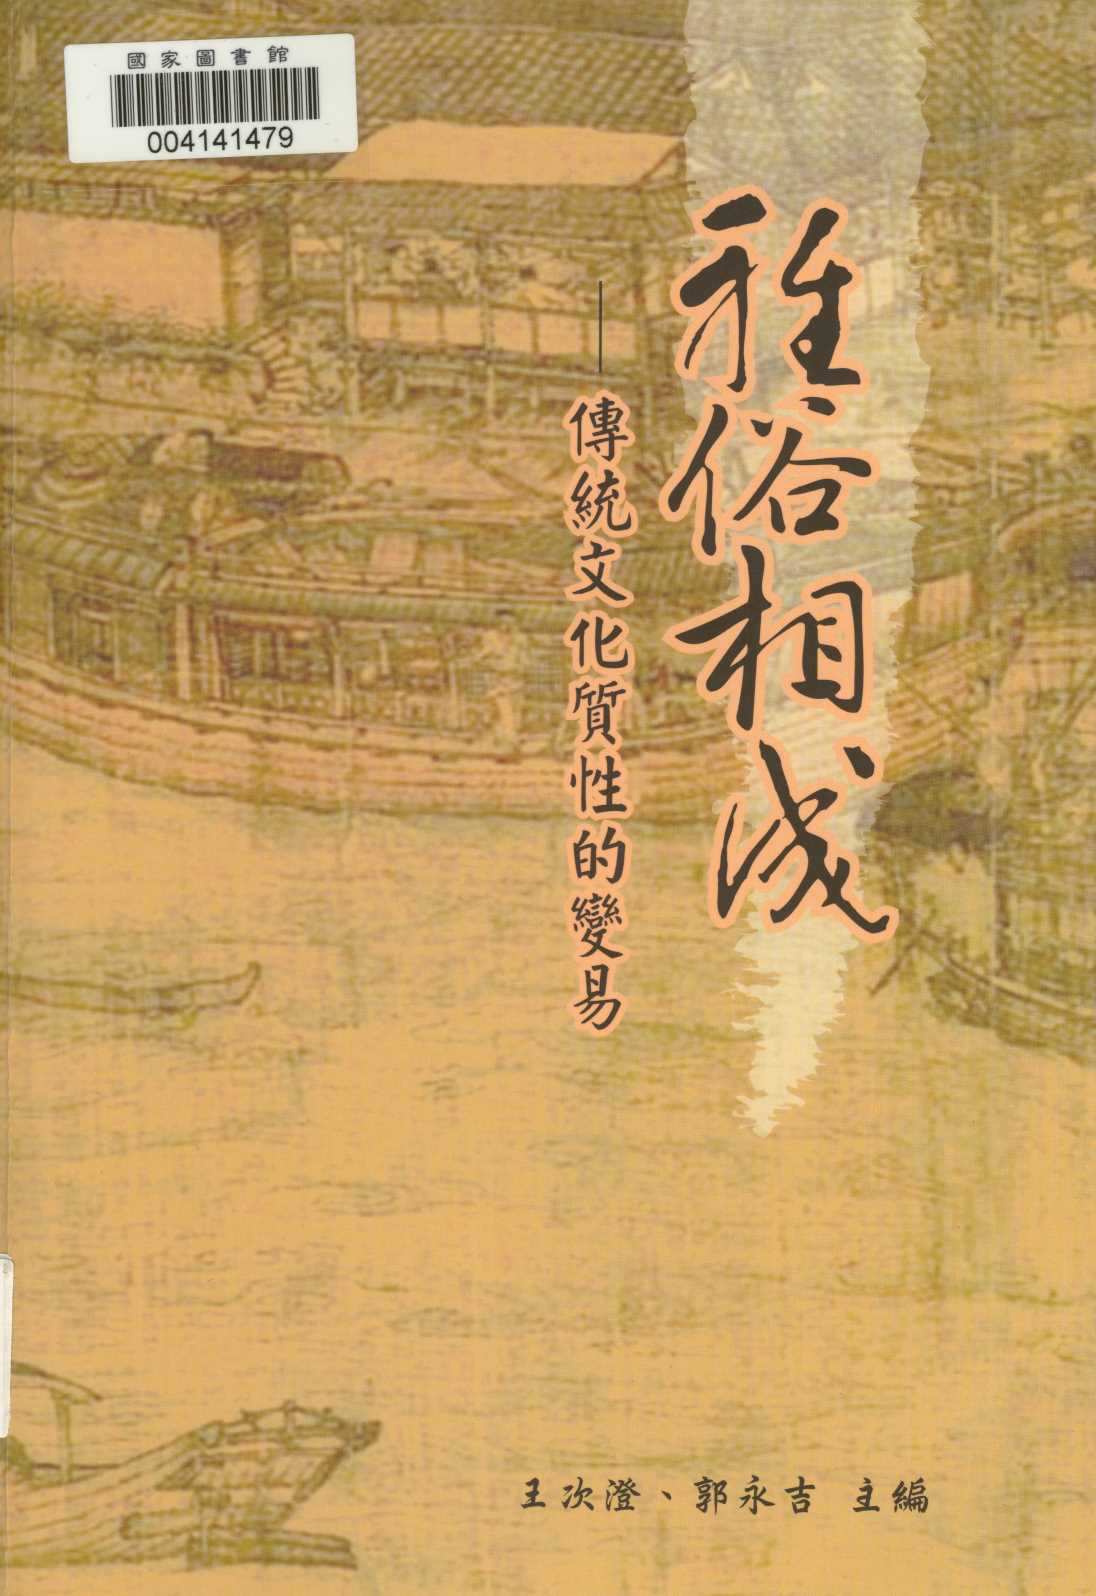 國家圖書館
004141479
雅俗相成
——傳統文化質性的變易
王次澄、郭永吉 主編